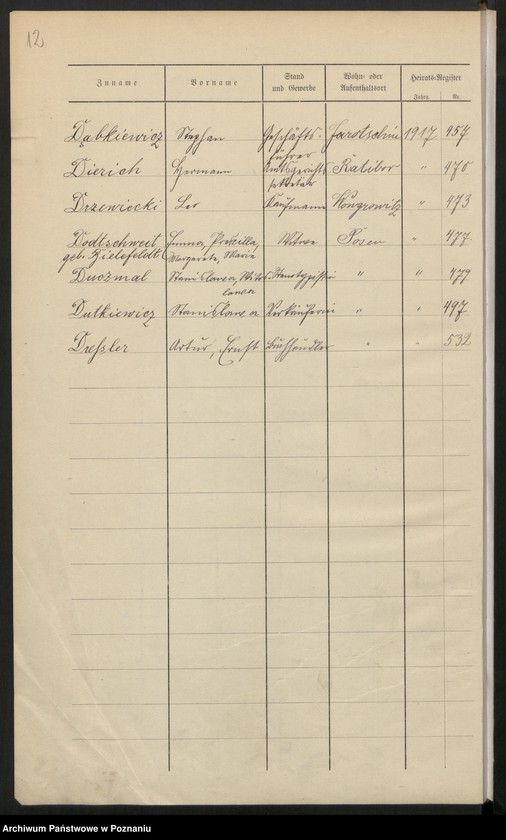 12
Zuname Vorname Stand und Gewerbe Wohn- oder Aufenthaltsort Heirats-Register
Jahr. Nr.
Dąbkiewicz Stephan Geschäfts- Jarotschin 1917 457
führer
Dierich Hermann Amtsgerichts Ratibor " 470
sekretär
Drzewiecki Leo Kaufmann Wongrowitz " 473
Dodtschweit Emma, Priscilla, Witwe Posen " 477
geb. Bielefeldt Margarete, Marie
Stanislawa, " " 477
Dutkiewicz Stanislawa Verkäuferin " " 497
Dreßler Artur, Ernst Buchhändler " " 532
Archiwum Państwowe w Poznaniu